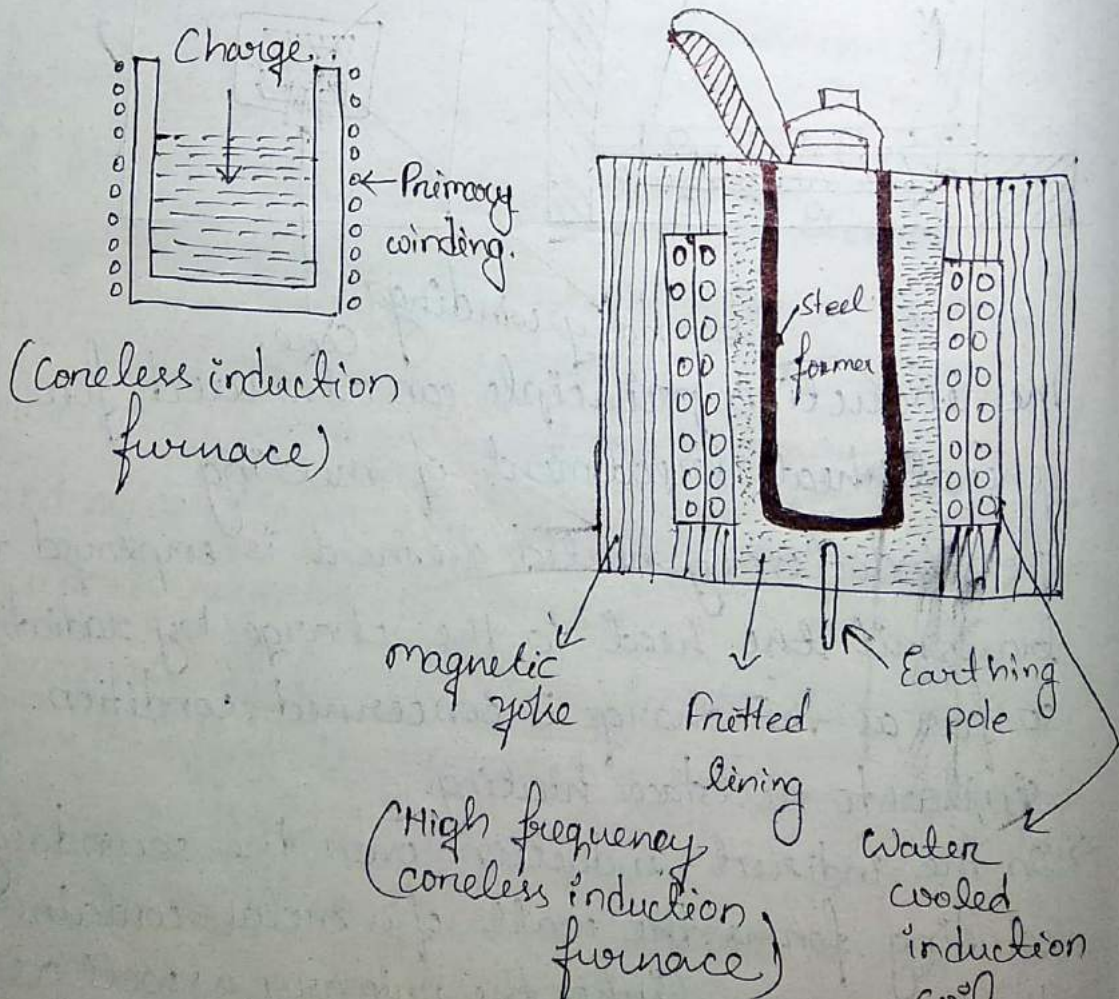 Charge
Primary
winding.
(Coreless induction
furnace)
steel
former
magnetic
yoke
Fritted
lining
Earthing
pole
(High frequency
coreless induction
furnace)
Water
cooled
induction
coil